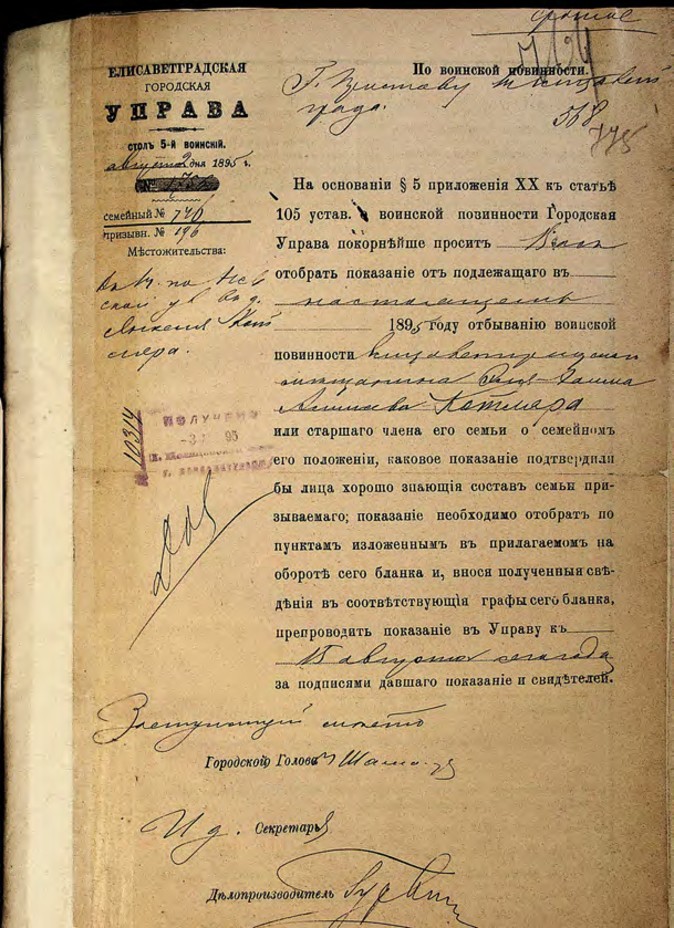 ЕЛИСАВЕТГРАДСКАЯ
ГОРОДСКАЯ
УПРАВА
столъ 5-й воинскій.
августа 2 дня 1895 г.
семейный № 740
призывн. № 196
Мѣстожительства:
По воинской повинности.
Г. Приставу
града.
568
На основаніи § 5 приложенія XX къ статьѣ
105 устав. о воинской повинности Городская
Управа покорнѣйше проситъ Васъ
отобрать показаніе отъ подлежащаго въ
настоящемъ
1895 году отбыванію воинской
повинности Елисаветградскаго
мѣщанина
Котляра
или старшаго члена его семьи о семейномъ
его положеніи, каковое показаніе подтвердили
бы лица хорошо знающія составъ семьи при-
зываемаго; показаніе необходимо отобрать по
пунктамъ изложеннымъ въ прилагаемомъ на
оборотѣ сего бланка и, внося полученныя свѣ-
дѣнія въ соотвѣтствующія графы сего бланка,
препроводить показаніе въ Управу къ
15 августа сего года
за подписями давшаго показаніе и свидѣтелей.
10314
ПОЛУЧЕНО
95
Заступающій мѣсто
Городской Голова
И д. Секретарь
Дѣлопроизводитель